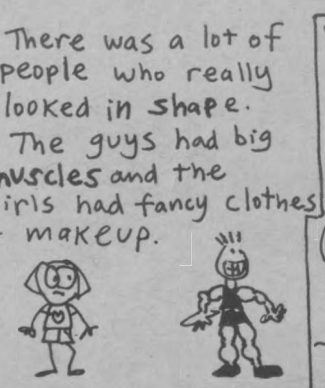 There was a lot of
people who really
looked in shape.
The guys had big
muscles and the
irls had fancy clothes
makeup.